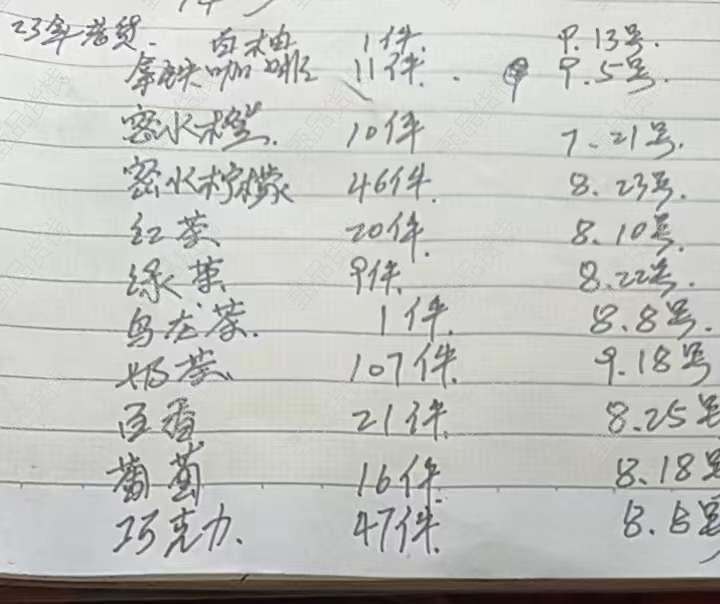 23年老货. 西柚 1件. 9.13号.
拿铁咖啡 11件. 9.5号.
密水 10件 7.21号.
密水柠檬 46件. 8.23号.
红茶 20件. 8.10号.
绿茶 9件. 8.22号.
乌龙茶. 1件. 8.8号.
奶茶 107件. 9.18号
百香 21件. 8.25号
葡萄 16件. 8.18号
巧克力. 47件. 8.5号